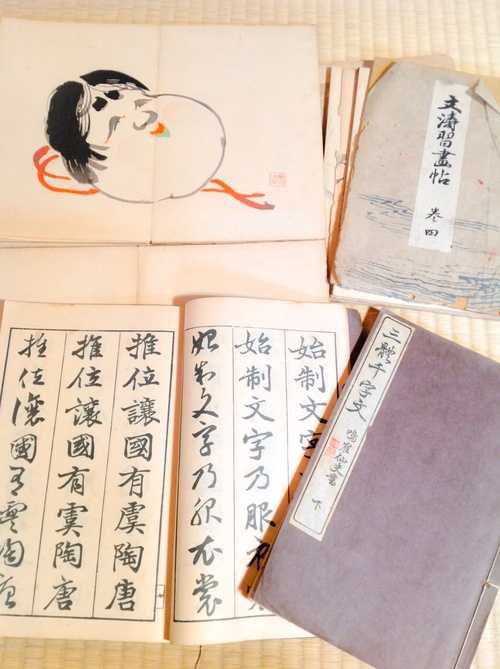 文濤習畫帖
卷四
三體千字文
鳴鶴仙史書
下
始制文字
始制文字乃服衣
始制文字乃服衣裳
推位讓國有虞陶唐
推位讓國有虞陶唐
推位讓國有虞陶唐